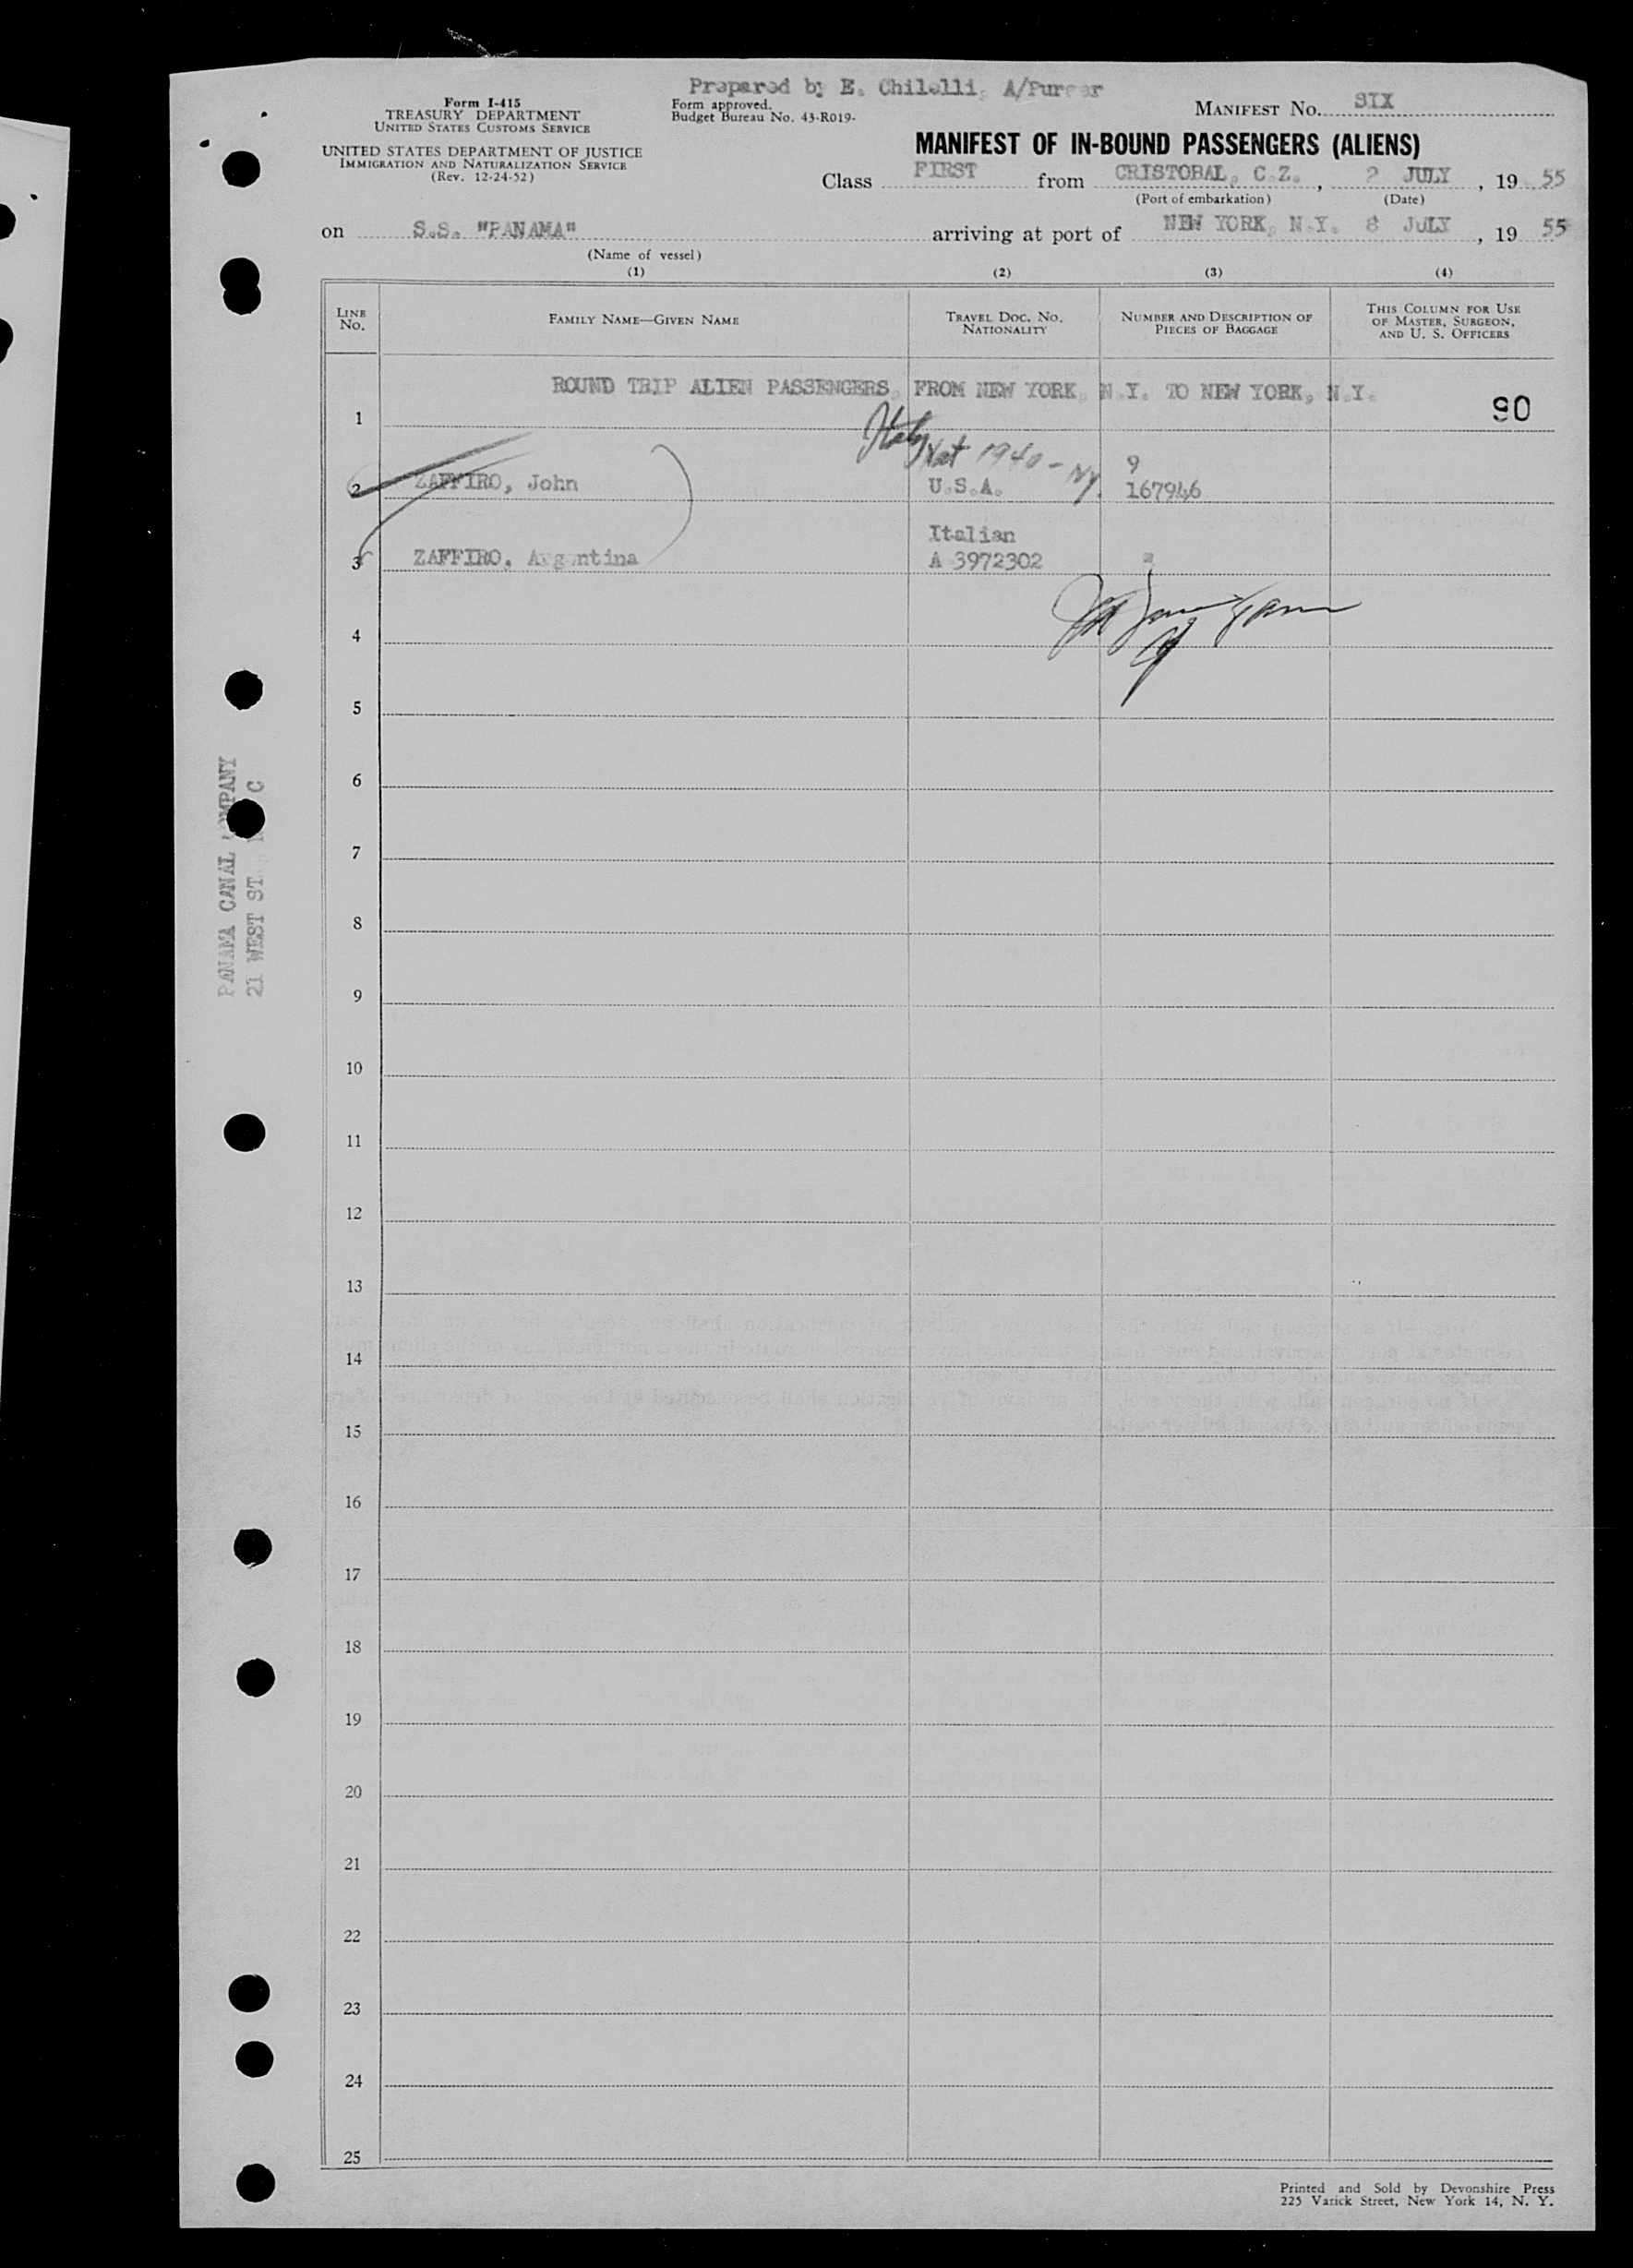 Prepared by E. Chilelli, A/Purser
Form I-415
TREASURY DEPARTMENT
UNITED STATES CUSTOMS SERVICE
UNITED STATES DEPARTMENT OF JUSTICE
IMMIGRATION AND NATURALIZATION SERVICE
(Rev. 12-24-52)
Form approved.
Budget Bureau No. 43-R019-
MANIFEST No. SIX
MANIFEST OF IN-BOUND PASSENGERS (ALIENS)
Class FIRST from CRISTOBAL, C.Z., 2 JULY, 19 55
(Port of embarkation) (Date)
on S.S. "PANAMA" arriving at port of NEW YORK, N.Y. 8 JULY, 19 55
(Name of vessel)
(1) (2) (3) (4)
LINE No. FAMILY NAME—GIVEN NAME TRAVEL DOC. NO. NATIONALITY NUMBER AND DESCRIPTION OF PIECES OF BAGGAGE THIS COLUMN FOR USE OF MASTER, SURGEON, AND U. S. OFFICERS
ROUND TRIP ALIEN PASSENGERS, FROM NEW YORK, N.Y. TO NEW YORK, N.Y.
1 90
Italy Nat 1940 - NY. 9
2 ZAFFIRO, John U.S.A. 167946
Italian
3 ZAFFIRO, Argentina A 3972302
4
5
6
7
8
9
10
11
12
13
14
15
16
17
18
19
20
21
22
23
24
25
PANAMA CANAL COMPANY
21 WEST ST
Printed and Sold by Devonshire Press
225 Varick Street, New York 14, N. Y.